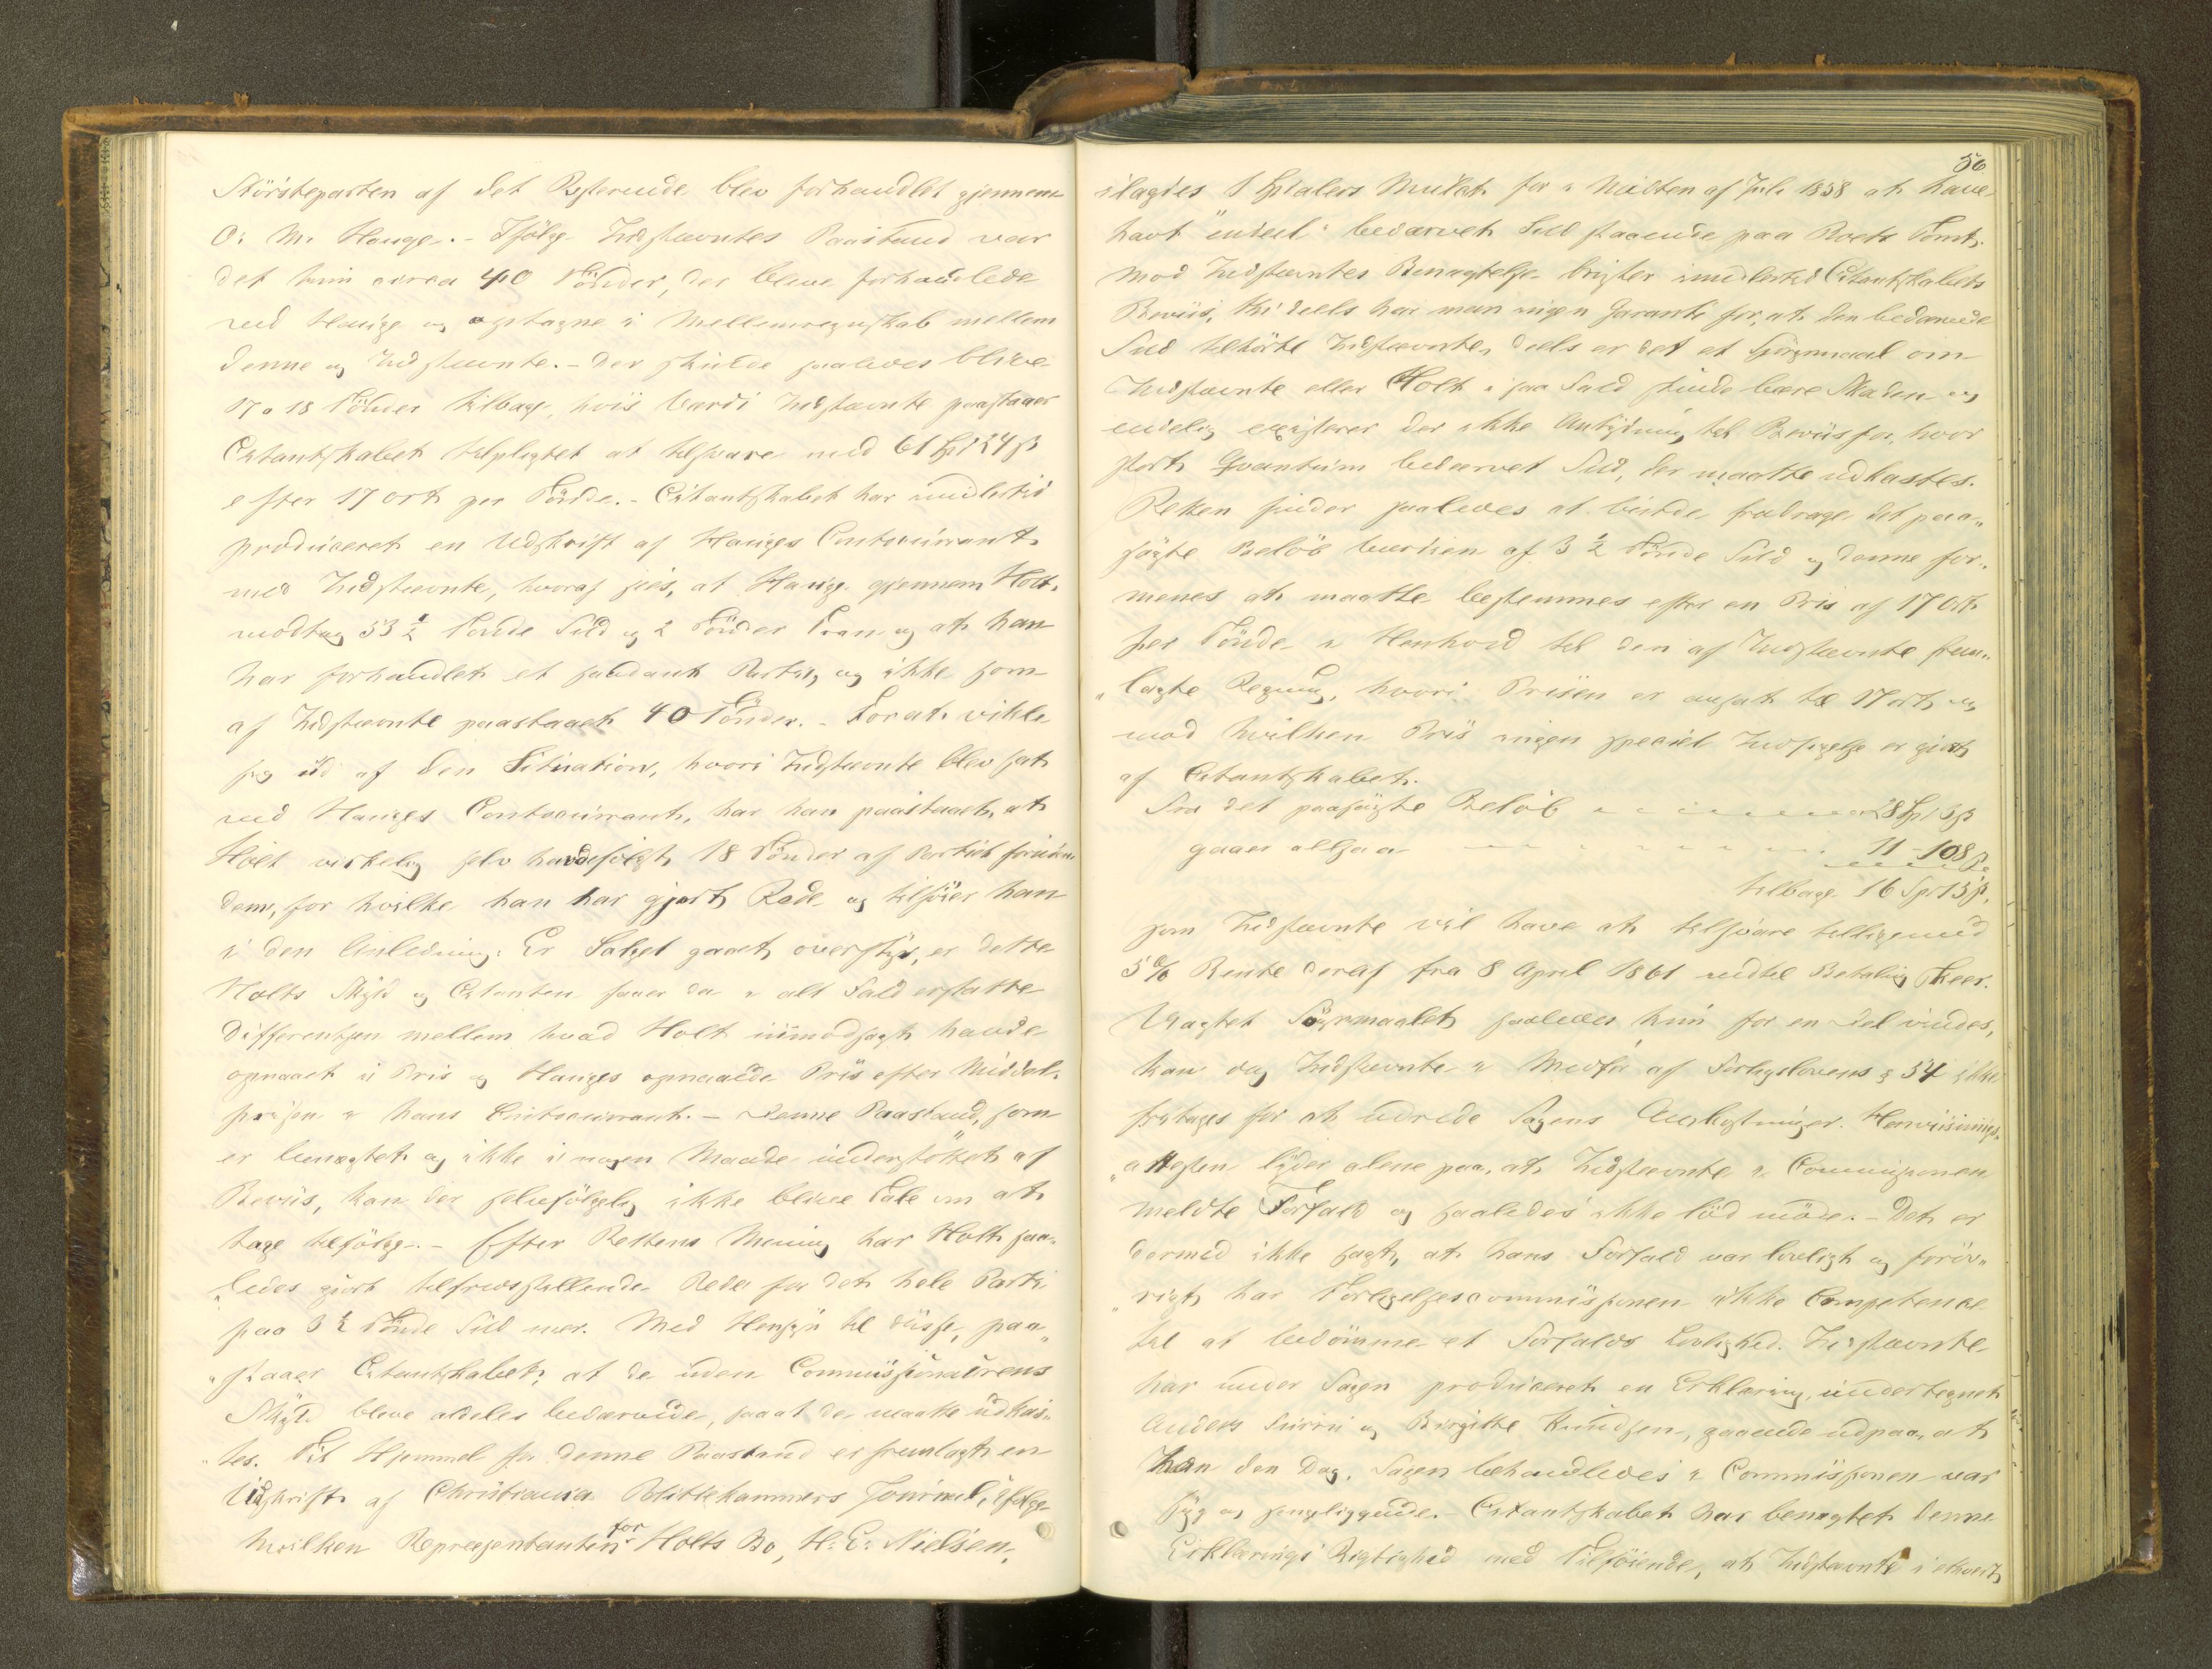 Störsteparten af det Resterende blev forhandlet gjennem
O. M. Hauge. – Ifölge Indstævntes Paastand var
det kun circa 40 Tönder, der bleve forhandlede
ved Hauge og optagne i Mellemregnskab mellem
denne og Indstævnte. – Der skulde saaledes blive
17 a 18 Tönder tilbage, hviis Værdi Indstævnte paastaaer
Citantskabet tilpligtet at tilsvare med 61 Sp 24 ß
efter 17 ort pr Tönde. – Citantskabet har imidlertid
produceret en Udskrift af Hauges Contocourant
med Indstævnte, hvoraf sees, at Hauge gjennem Holt
modtog 53 ½ Tönde Sild og 2 Tönder Tran og at han
har forhandlet et saadant Parti, og ikke som
af Indstævnte paastaaet 40 Tönder. – For at vikle
sig ud af den Situation, hvori Indstævnte blev sat
ved Hauges Contocourant, har han paastaaet, at
Holt virkelig selv havde solgt 18 Tönder af Partiet foruden
dem, for hvilke han har gjort Rede og tilföier han
i den Anledning: Er Salget gaaet overstyr, er dette
Holts Skyld og Citanten faaer da i alt Fald erstatte
Differentsen mellem hvad Holt uimodsagt havde
opnaaet i Pris og Hauges opnaaede Priis efter Middel-
prisen i hans Contocourant. – Denne Paastand, som
er benægtet og ikke i nogen Maade understöttet af
Beviis, kan der selvfölgelig ikke blive Tale om at
tage tilfölge. – Efter Rettens Mening har Holt saa-
„ledes gjort tilfredsstillende Rede for det hele Parti
paa 3 ½ Tönde Sild nær. Med Hensyn til disse, paa-
„staaer Citantskabet, at de uden Commissionairens
Skyld bleve aldeles bedærvede, saa at de maatte udkas-
„tes. Til Hjemmel for denne Paastand er fremlagt en
Udskrift af Christiania Politiekammers Journal, ifölge
hvilken Repræsentanten for Holts Bo, H. E. Nielsen,
56
ilagdes 1 Spdalers Mulct for i Midten af Juli 1858 at have
havt "endeel" bedærvet Sild staaende paa Roets Tomt.
Mod Indstævntes Benægtelse brister imidlertid Citantskabets
Beviis, thi deels har man ingen Garanti for, at den bedærvede
Sild tilhörte Indstævnte, deels er det et Spörgsmaal om
Indstævnte eller Holt i saa Fald burde bære Skaden og
endelig existerer der ikke Antydning til Beviis for, hvor
stort Qvantum bedærvet Sild, der maatte udkastes.
Retten finder saaledes at burde fradrage det paa-
sögte Belöb Værdien af 3 ½ Tönde Sild og denne for-
menes at maatte bestemmes efter en Pris af 17 Ort
per Tönde i Henhold til den af Indstævnte frem-
„lagte Regning, hvori Prisen er ansat til 17 ort og
mod hvilken Priis ingen speciel Indsigelse er gjort
af Citantskabet.
Fra det paasögte Belöb 28 Sp 1 ß
gaaer altsaa 11 - 108 ß
tilbage 16 Sp 13 ß,
som Indstævnte vil have at tilsvare tilligemed
5 % Rente deraf fra 8 April 1861 indtil Betaling skeer.
Uagtet Sögsmaalet saaledes kun for en Del vindes,
kan dog Indstævnte i Medför af Forligslovens § 54 ikke
fritages for at udrede Sagens Omkostninger. Henviisnings-
„attesten lyder alene paa, at Indstævnte i Commissionen
meldte Forfald og saaledes ikke löd möde. – Det er
dermed ikke sagt, at hans Forfald var lovligt og foröv-
„rigt har Forligelsescommissionen ikke Competence
til at bedömme et Forfalds Lovlighed. Indstævnte
har under Sagen produceret en Erklæring, undertegnet
Anders Furru og Birgitte Knudsen, gaaende ud paa, at
han den Dag, Sagen behandledes i Commissionen var
syg og sengeliggende. – Citantskabet har benægtet denne
Erklærings Rigtighed med Tilföiende, at Indstævnte i ethvert